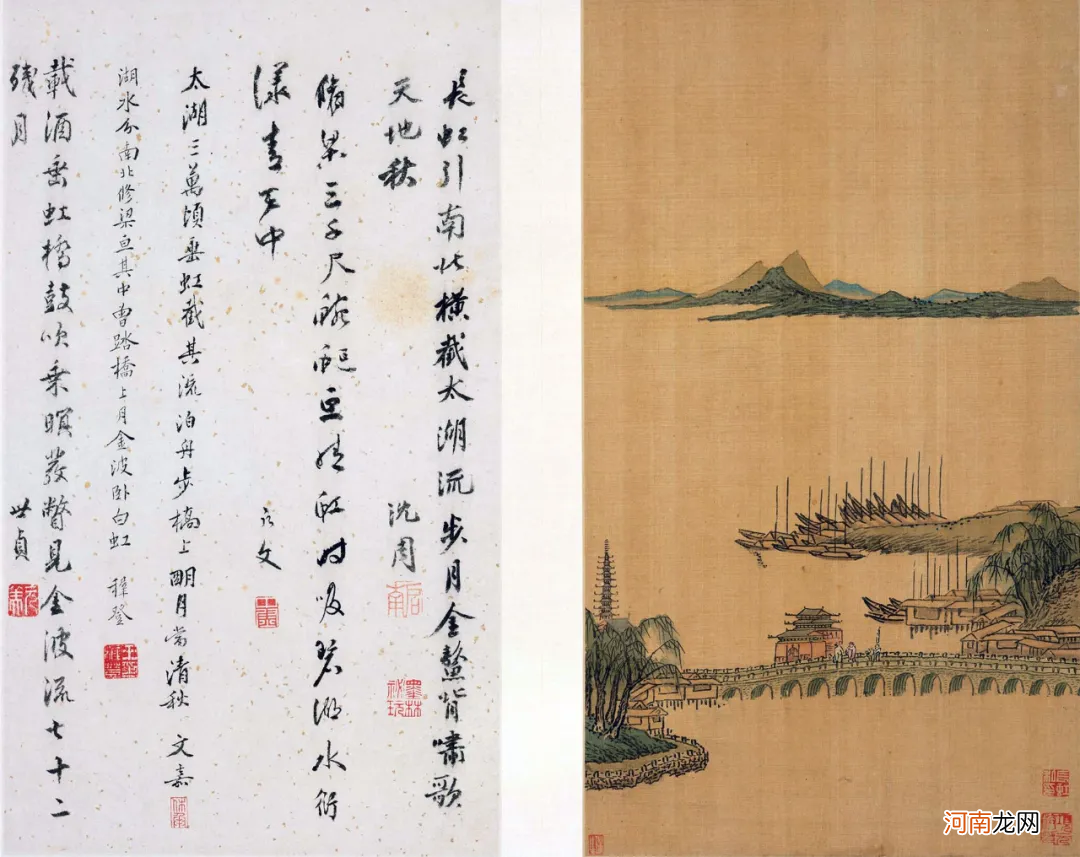 長虹引南北橫截太湖流步月金鰲背嘯歌
天地秋 沈周
脩梁三千尺蜿蜒亘晴虹时吸碧湖水衍
漾青天中 文
太湖三萬頃垂虹截其流泊舟步橋上明月當清秋 文嘉
湖水分南北修梁亘其中曾踏橋上月金波卧白虹 穉登
載酒垂虹橋鼓吹乘暝發瞥見金波流七十二
殘月 世貞
河南龙网